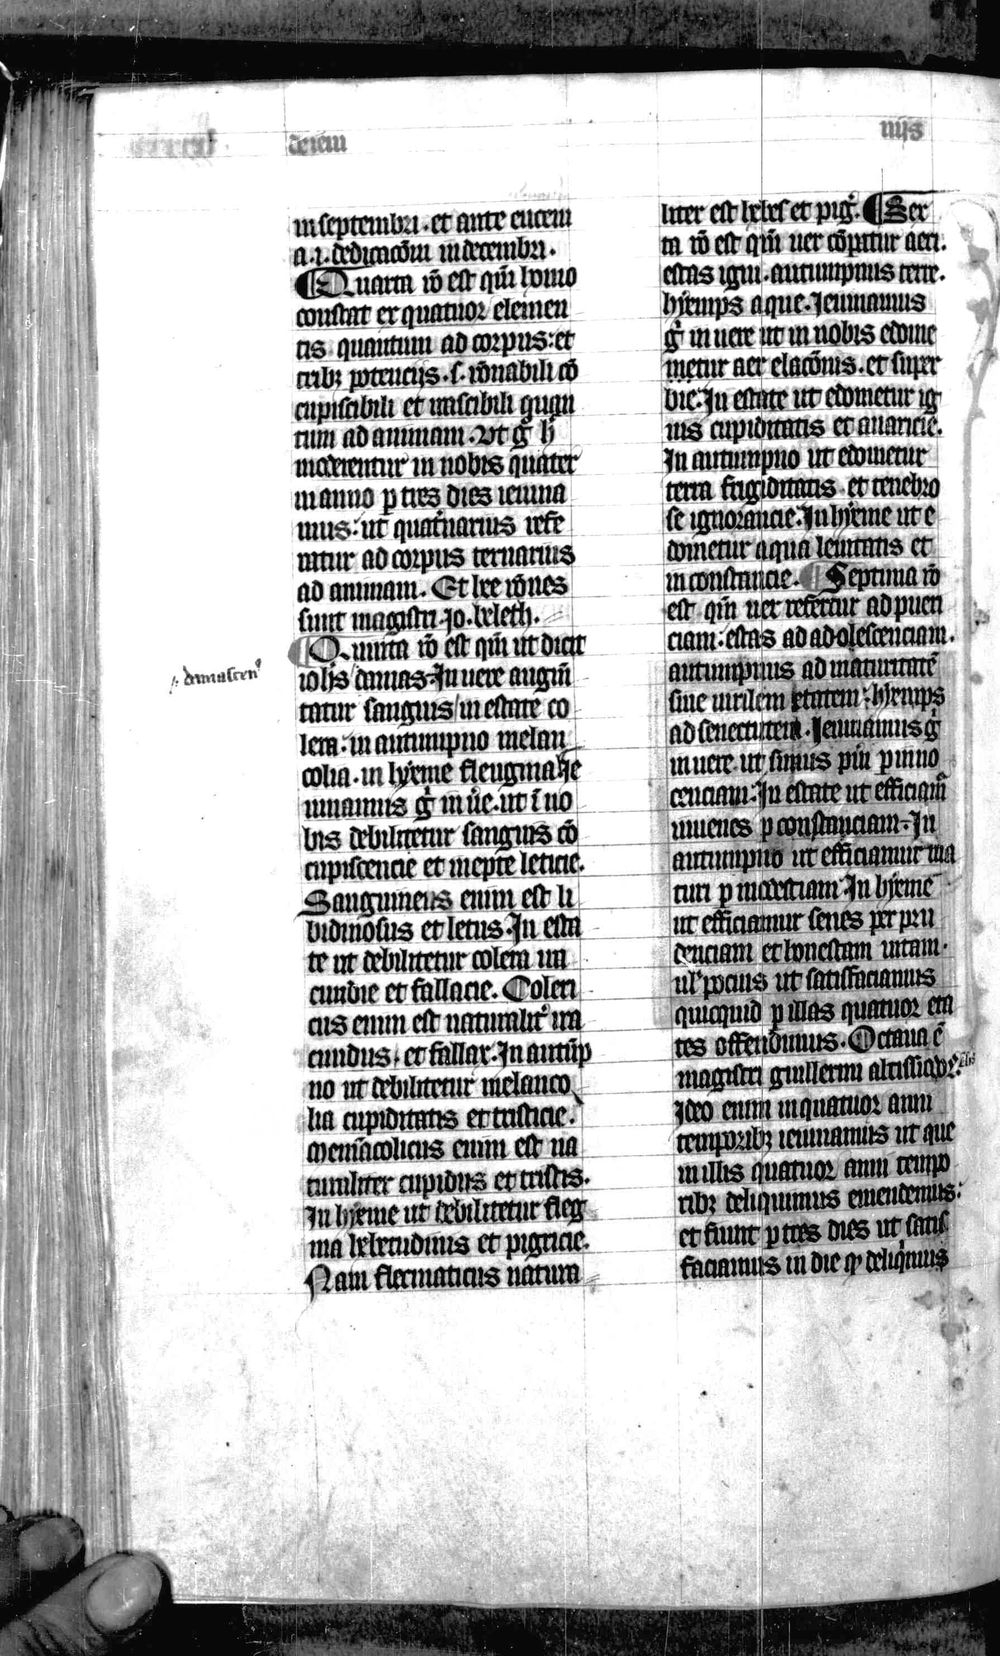 ieieiu
iiijs
in septembri · et ante encenia
a · i · dedicacōm in decembri ·
Quarta rō est qm̄ homo
constat ex quatuor elemen
tis quantum ad corpus : et
tribꝫ potencijs · s · rōnabili cō
cupiscibili et irascibili quan
tum ad animam · Vt gͦ h̄
moderentur in nobis quater
in anno ꝑ tres dies ieiuna
mus : ut quat̾narius refe
ratur ad corpus ternarius
ad animam · Et hee rōnes
sunt magistri Jo · beleth ·
Quinta rō est qm̄ ut dicit
ioh̄s damas · In uere augm̄
damascenꝰ
tatur sanguis / in estate co
lera · in autumpno melan
colia · in hyeme fleugma · Je
iunamus gͦ in ūe · ut ī no
bis debilitetur sanguis cō
cupiscencie et inepte leticie ·
Sanguineus enim est li
bidinosus et letus · In esta
te ut debilitetur colera ira
cundie et fallacie · Coleri
cus enim est naturalit̾ ira
cundus · et fallax · In autūp
no ut debilitetur melanco
lia cupiditatis et tristicie ·
Melācolicus enim est na
turaliter cupidus et tristis ·
In hyeme ut debilitetur fleg
ma hebetudinis et pigricie ·
Nam flecmaticus natura
liter est hebes et pig̾ · Sex
ta rō est qm̄ uer cōparatur aeri ·
estas igni · autumpnus terre ·
hyemps aque · Jeiunamus
gͦ in uere ut in nobis edome
metur aer elacōnis · et super
bie · In estate ut edometur ig
nis cupiditatis et auaricie ·
In autumpno ut edometur
terra frigiditatis · et tenebro
se ignorancie · In hyeme ut e
dometur aqua leuitatis et
in constancie · Septima rō
est qm̄ uer refertur ad pueri
ciam : estas ad adolescenciam ·
autumpnus ad maturitatē
siue uirilem etatem : hyemps
ad senectutem · Jeiunamus gͦ
in uere ut simus pūi ꝑ inno
cenciam · In estate ut efficiam̄
iuuenes ꝑ constanciam · In
autumpno ut efficiamur ma
turi ꝑ modestiam · In hyeme
ut efficiamur senes per pru
denciam et honestam uitam ·
ul̾ pocius ut satisfaciamus
quicquid ꝑ illas quatuor eta
tes offendimus · Octaua ē
magistri guillermi altissiod
Ideo enim in quatuor anni
temporibꝫ ieiunamus ut que
in illis quatuor anni tempo
ribꝫ deliquimus emendemus :
et fiunt ꝑ tres dies ut satis
faciamus in die ꝙ deliqͥmus